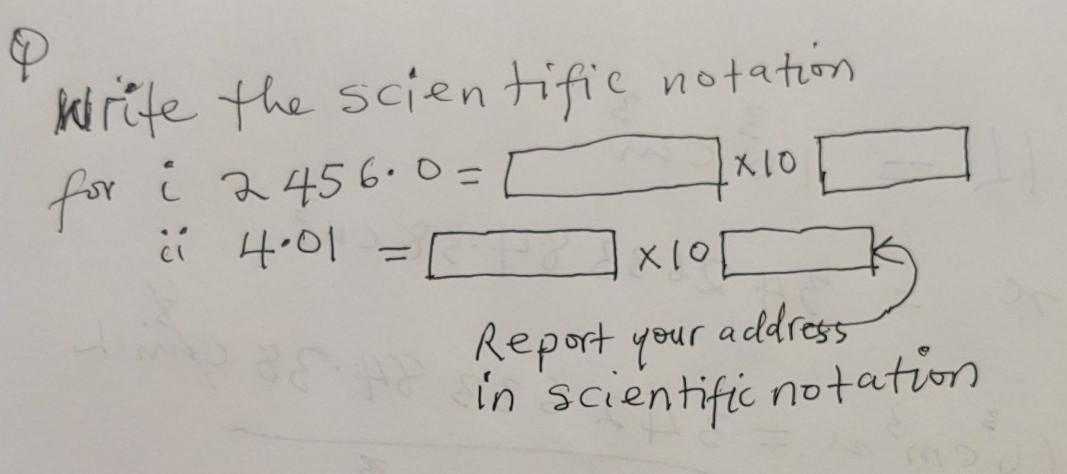 Q
Write the scientific notation
for i 2456.0 = ×10
ii 4.01 = ×10
Report your address
in scientific notation